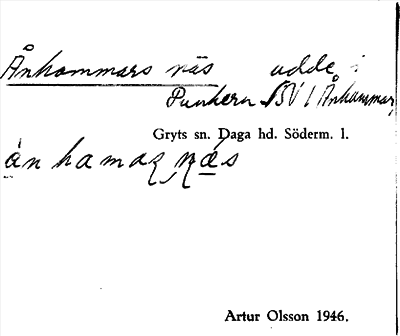 Ånhammars näs udde i
Punkern SV / Ånhammar,
Gryts sn. Daga hd. Söderm. l.
ån hamaz näs
Artur Olsson 1946.